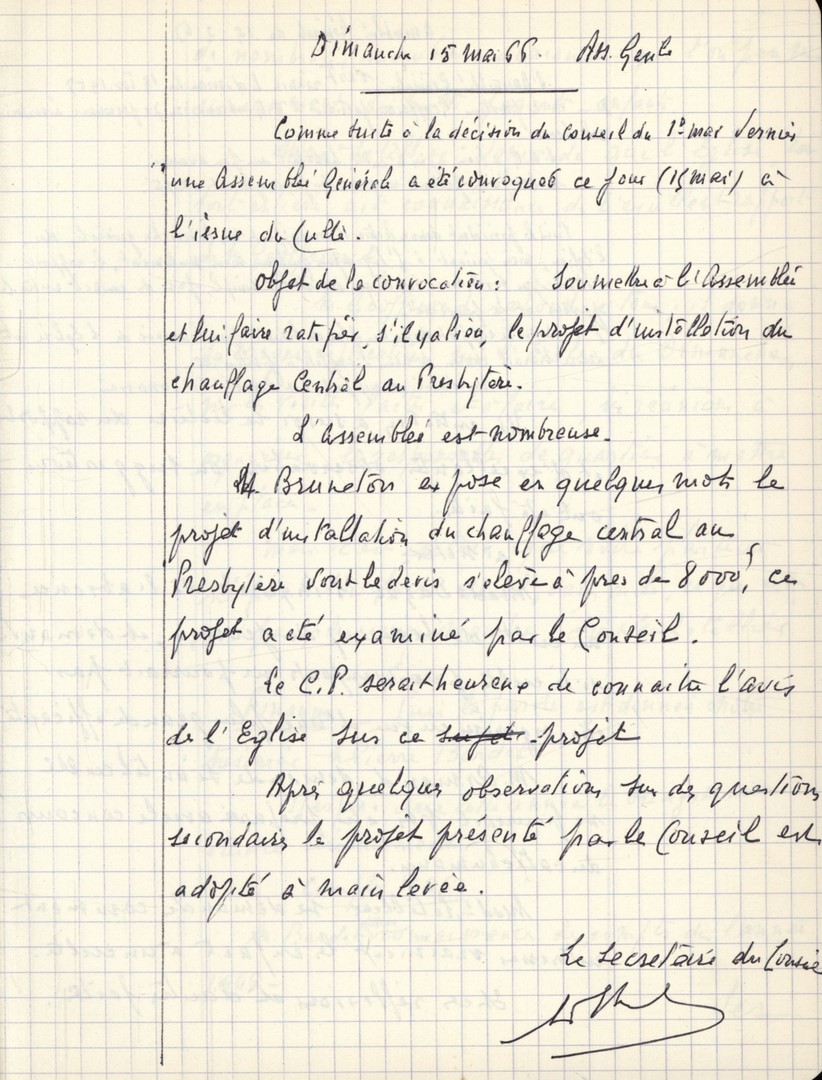 Dimanche 15 mai 66. Ass. Gente
Comme suite à la décision du conseil du 1er mai dernier
une Assemblée Générale a été convoquée ce jour (15 mai) à
l'issue du Culte.
Objet de la convocation : Soumettre à l'Assemblée
et lui faire ratifier, s'il y a lieu, le projet d'installation du
chauffage Central au Presbytère.
L'Assemblée est nombreuse.
M. Bruneton expose en quelques mots le
projet d'installation du chauffage central au
Presbytère dont le devis s'élève à près de 8000f, ce
projet a été examiné par le Conseil.
Le C.P. serait heureux de connaitre l'avis
de l'Eglise sur ce sujet projet
Après quelques observations sur des questions
secondaires le projet présenté par le Conseil est
adopté à main levée.
Le Secrétaire du Conseil